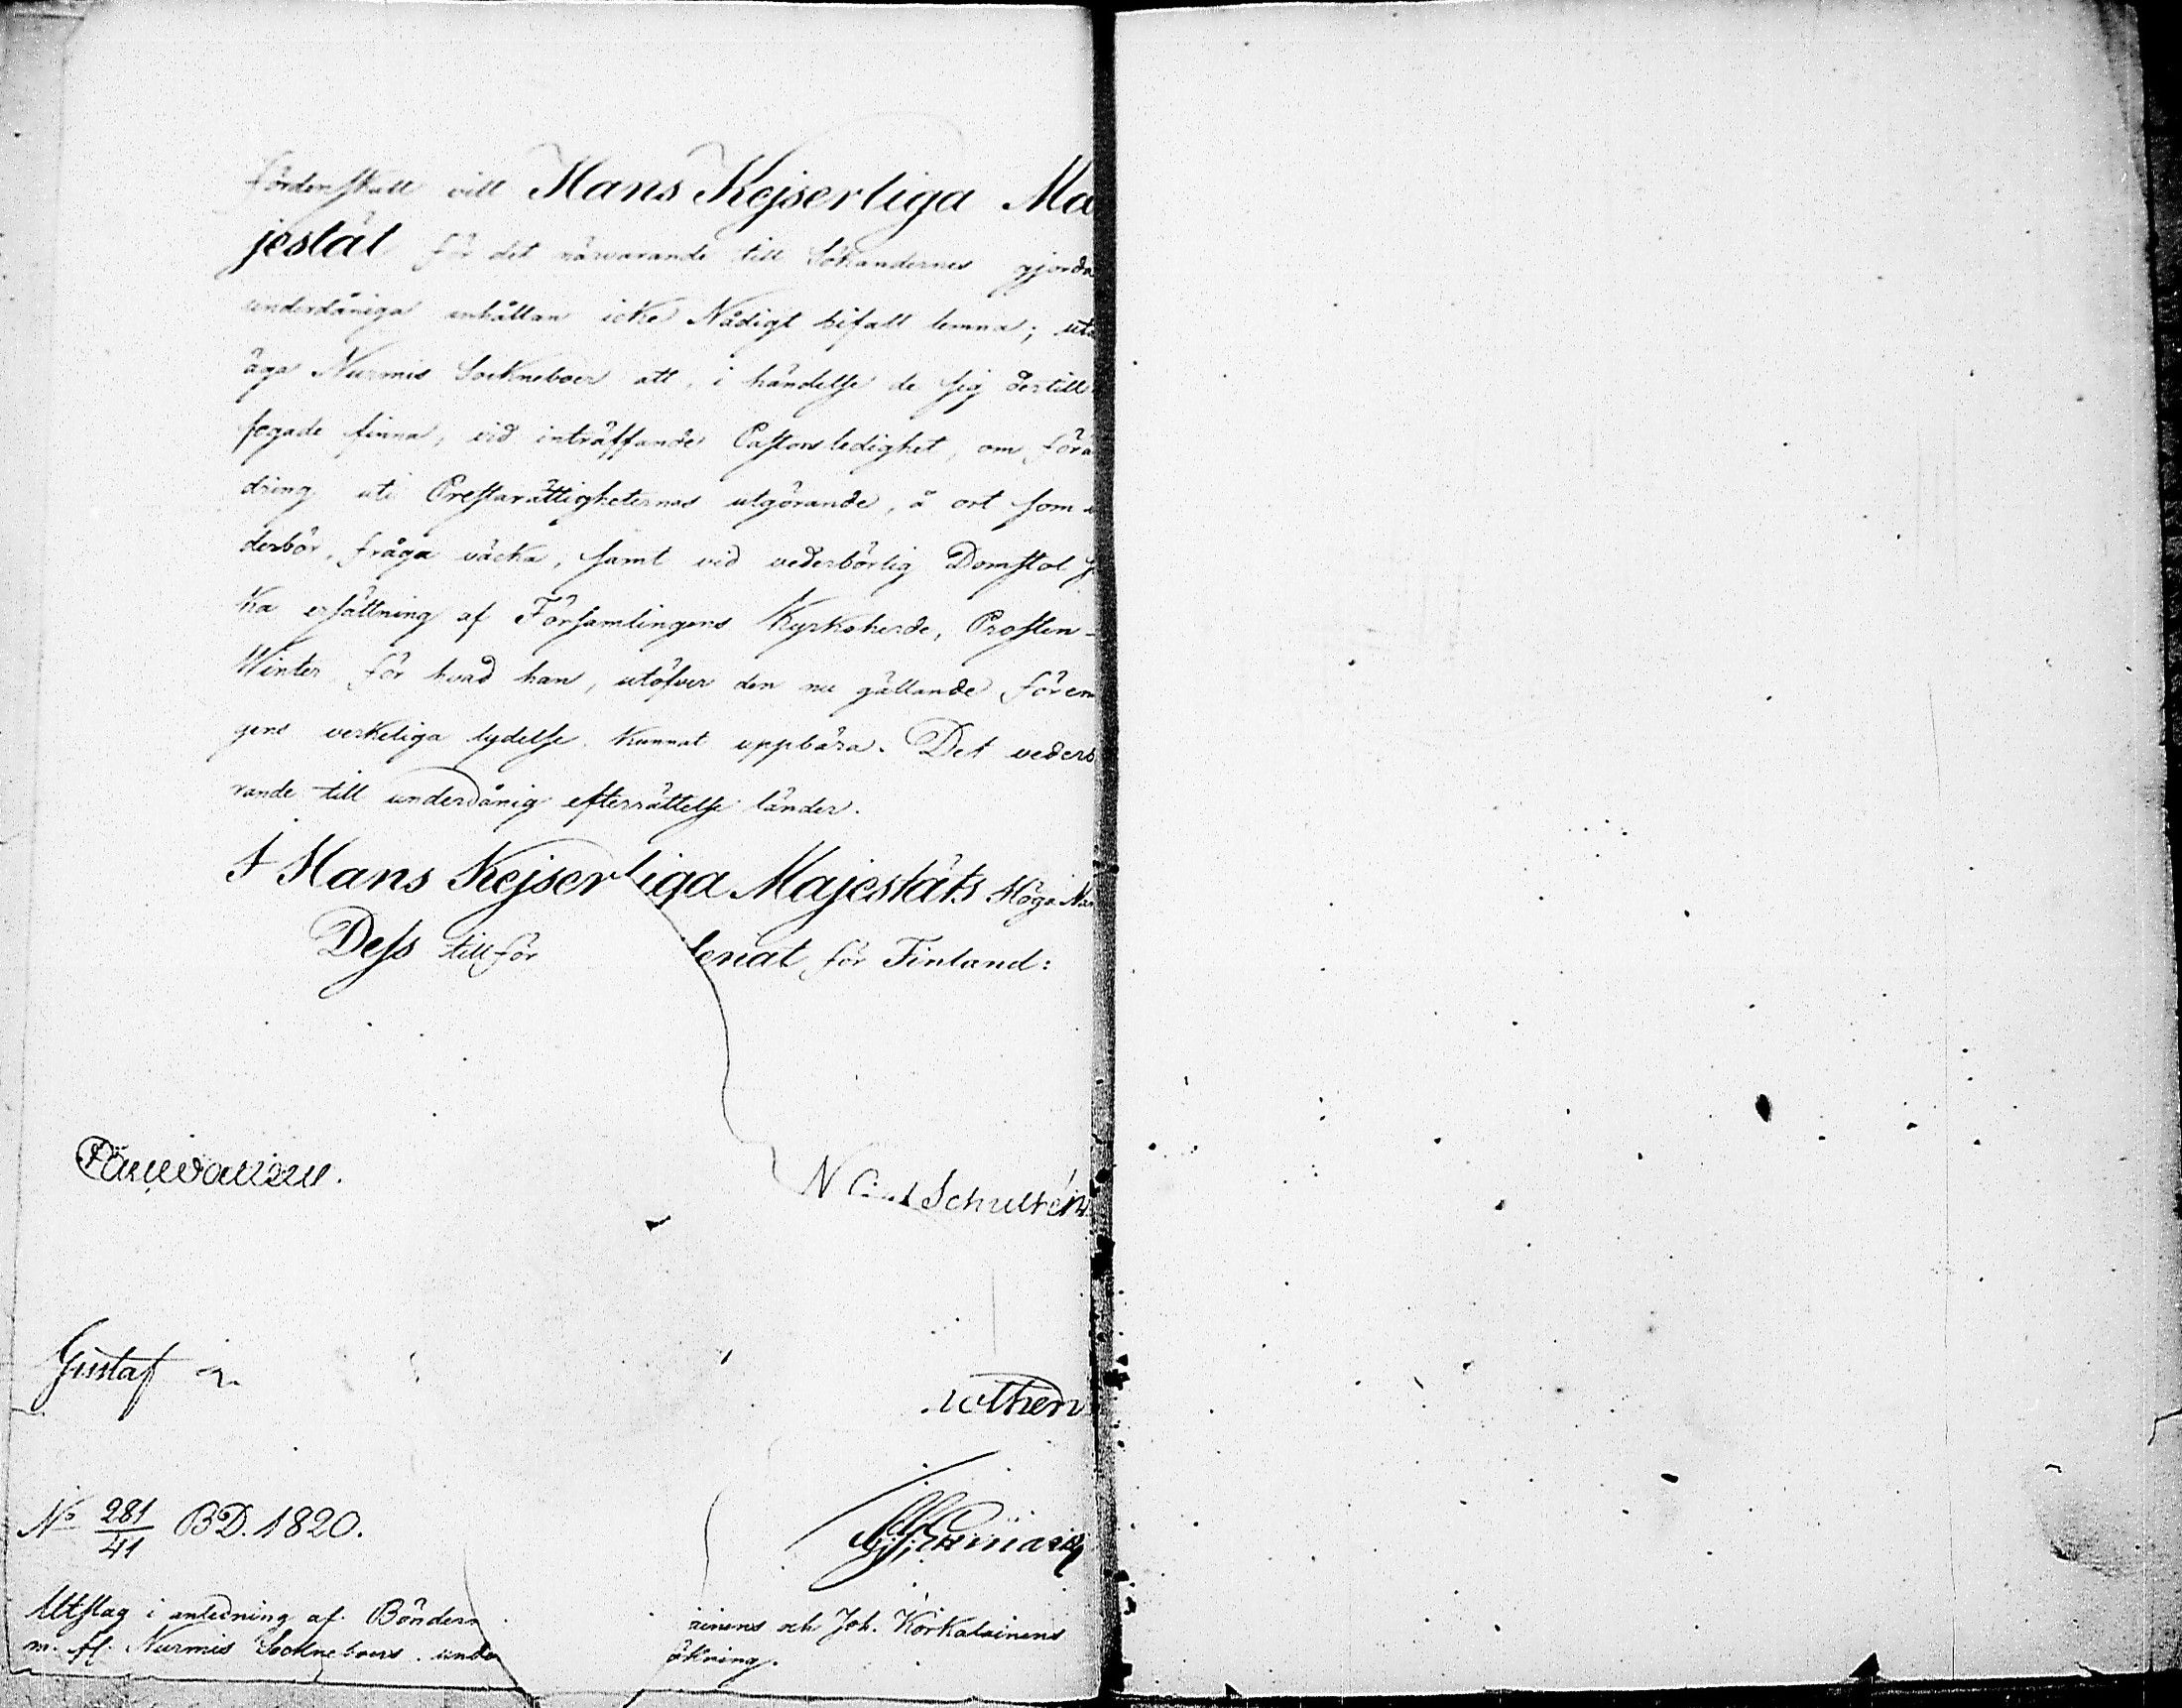 fördenskull vill Hans Kejserliga Ma
jestät för det närvarande till Sökandernes gjorda
underdåniga anhållan icke Nådigt bifall lemna; uta
äga Nurmis Sockneboer att, i händelse de sig dertill
fogade finna, vid inträffande Pastorsledighet, om förä
dring uti Prestarättigheternas utgörande, å ort som
derbör, fråga väcka, samt vid vederbörlig Domstol s
ka ersättning af Församlingens Kyrkoherde, Prosten
Winter för hvad han, utöfver den nu gällande fören
gens verkeliga lydelse kunnat uppbära. Det veders
rande till underdånig efterrättelse länder.
I Hans Kejserliga Majestäts Höga Na
Dess tillför Senat för Finland:
N Schultén
Gustaf
rothen
No 281/41 BD. 1820.
Utslag i anledning af Bönder ainens och Joh. Korkalainens
m. fl. Nurmis Sockneboers under ökning.